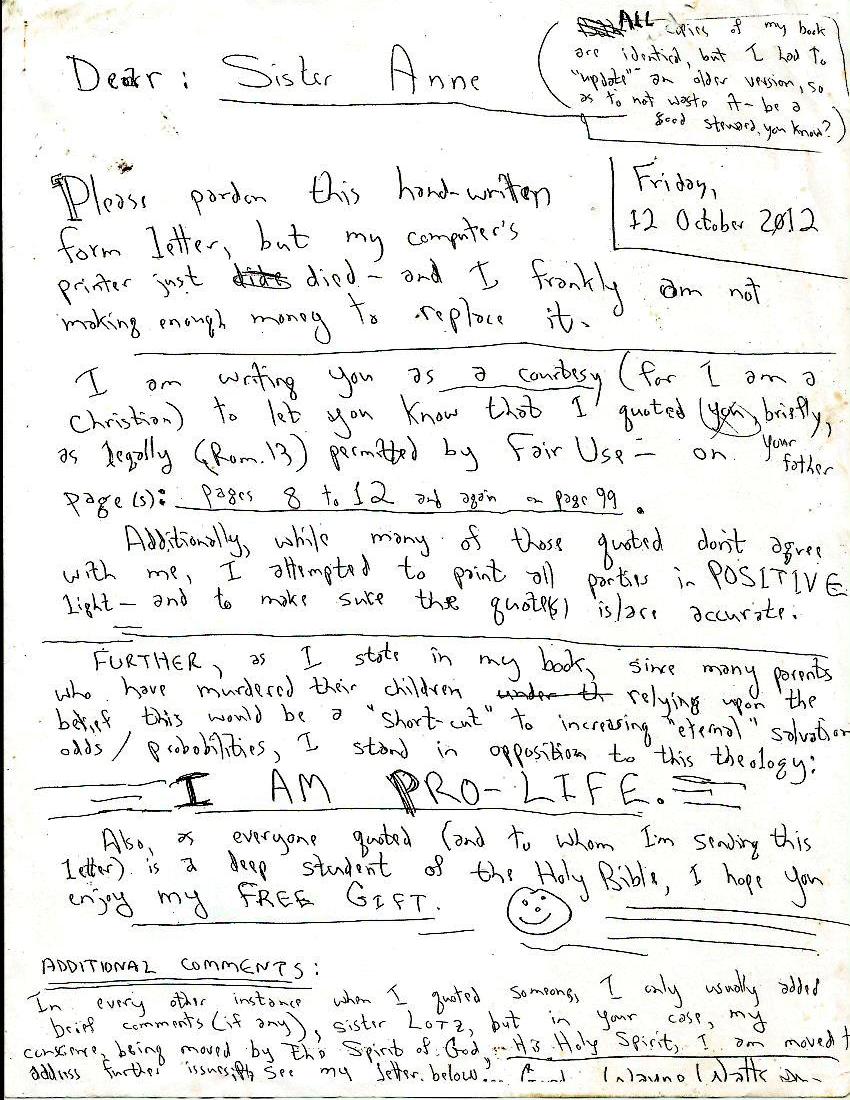 ALL copies of my book
are identical, but I had to
"update" an older version, so
as to not waste it - be a
good steward, you know?)
Dear: Sister Anne
Friday,
12 October 2012
Please pardon this hand-written
form letter, but my computer's
printer just died - and I frankly am not
making enough money to replace it.
I am writing you as a courtesy (for I am a
Christian) to let you know that I quoted (you, briefly,
your father
as legally (Rom.13) permitted by Fair Use - on
page(s): pages 8 to 12 and again on page 99.
Additionally, while many of those quoted don't agree
with me, I attempted to paint all parties in POSITIVE
light - and to make sure the quote(s) is/are accurate.
FURTHER, as I state in my book, since many parents
who have murdered their children under th relying upon the
belief this would be a "short-cut" to increasing "eternal" salvation
odds / probabilities, I stand in opposition to this theology:
I AM PRO-LIFE.
Also, as everyone quoted (and to whom I'm sending this
letter) is a deep student of the Holy Bible, I hope you
enjoy my FREE GIFT.
ADDITIONAL COMMENTS:
In every other instance when I quoted someone, I only usually added
brief comments (if any), sister LOTZ, but in your case, my
conscience, being moved by the Spirit of God, His Holy Spirit, I am moved t
address further issues. See my letter below...